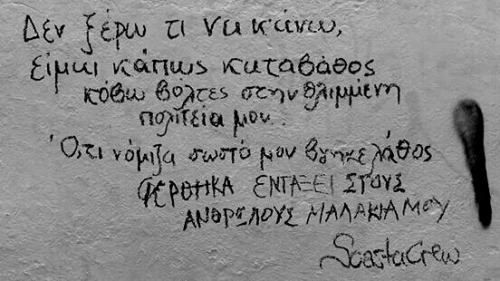 Δεν ξέρω τι να κάνω,
είμαι κάπως καταβάθος
κόβω βόλτες στην θλιμμένη
πολιτεία μου..
Ό,τι νόμιζα σωστό μου βγηκε λάθος
ΦΕΡΘΗΚΑ ΕΝΤΑΞΕΙ ΣΤΟΥΣ
ΑΝΘΡΩΠΟΥΣ ΜΑΛΑΚΙΑ ΜΟΥ
ScastaCrew